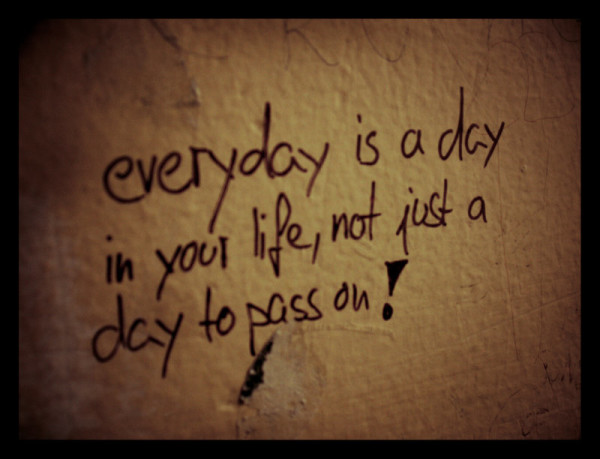 everyday is a day
in your life, not just a
day to pass on!